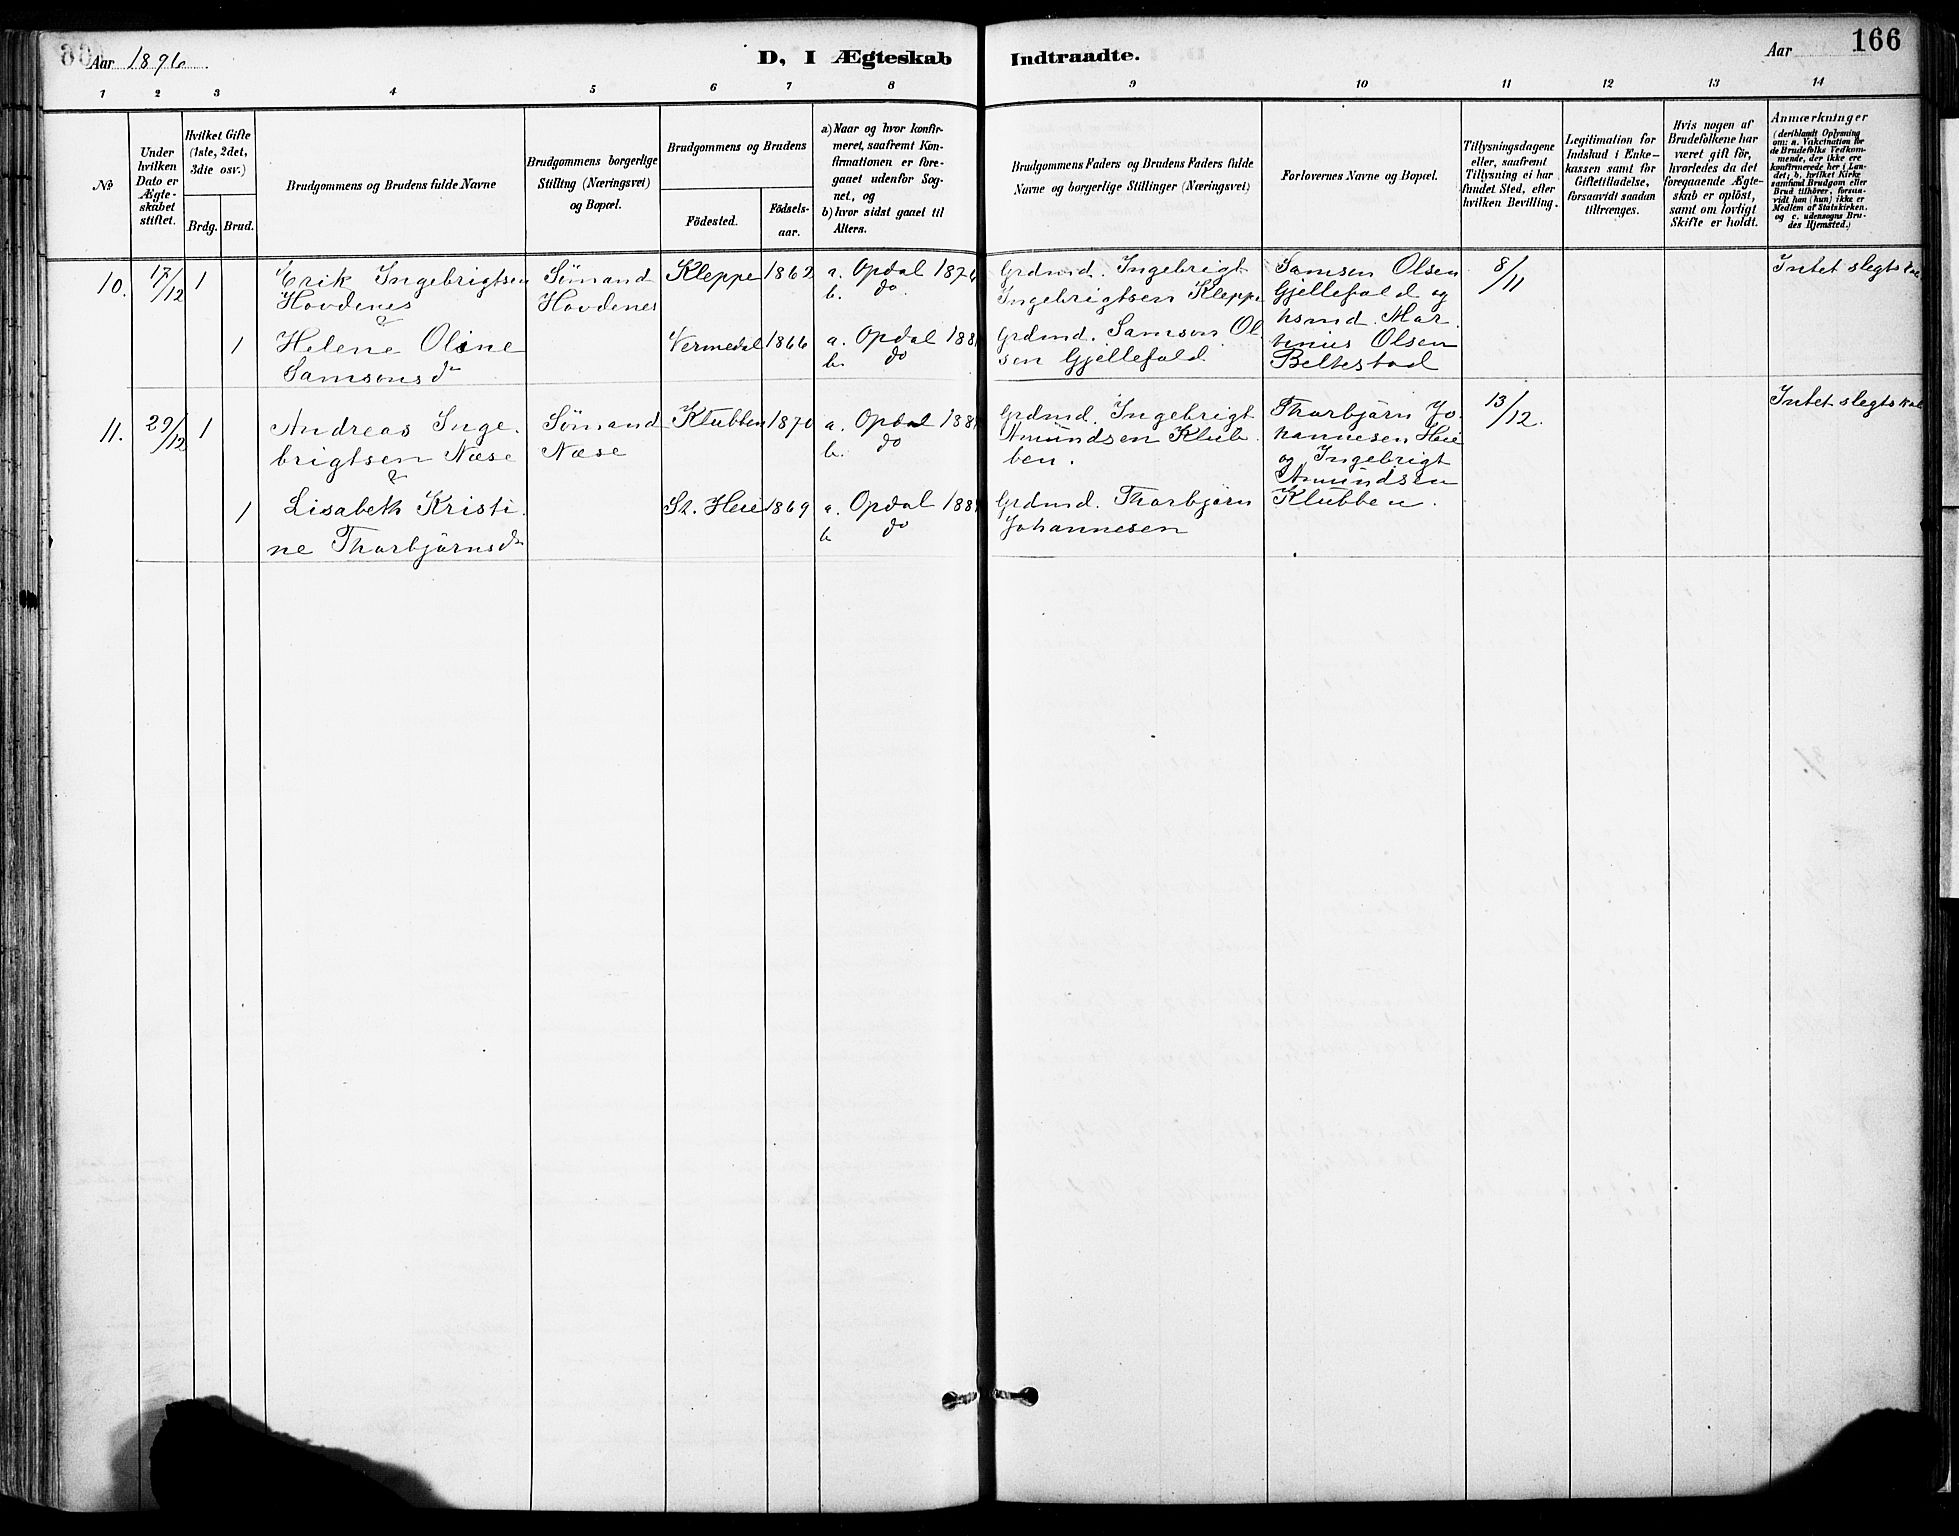 Aar 1896.
D, I Ægteskab
Indtraadte.
Aar
166
1 2 3 4 5 6 7 8 9 10 11 12 13 14
No
Under
hvilken
Dato er
Ægte-
skabet
stiftet.
Hvilket Gifte
(1ste, 2det,
3die osv.)
Brdg. Brud.
Brudgommens og Brudens fulde Navne
Brudgommens borgerlige
Stilling (Næringsvei)
og Bopæl.
Brudgommens og Brudens
Fødested.
Fødsels-
aar.
a) Naar og hvor konfir-
meret, saafremt Kon-
firmationen er fore-
gaaet udenfor Sog-
net, og
b) hvor sidst gaaet til
Alters.
Brudgommens Faders og Brudens Faders fulde
Navne og borgerlige Stillinger (Næringsvei)
Forlovernes Navne og Bopæl.
Tillysningsdagene
eller, saafremt
Tillysning ei har
fundet Sted, efter
hvilken Bevilling.
Legitimation for
Indskud i Enke-
kassen samt for
Giftetilladelse,
forsaavidt saadan
tiltrænges.
Hvis nogen af
Brudefolkene har
været gift før,
hvorledes da det
foregaaende Ægte-
skab er opløst,
samt om lovligt
Skifte er holdt.
Anmærkninger
(deriblandt Oplysning
om: a. Vakcination for
de Brudefolks Vedkom-
mende, der ikke ere
konfirmerede her i Lan-
det; b. hvilket Kirke
samfund Brudgom eller
Brud tilhører, forsaa-
vidt han (hun) ikke er
Medlem af Statskirken.
og c. udensogns Bru-
des Hjemsted.)
10. 17/12 1
Erik Ingebrigtsen
Hovdenes
&
Sømand
Hovdenes
Kleppe 1862
a. Opdal
b. do
Grdmd. Ingebrigt
Ingebrigtsen Kleppe
Samsen Olsen
Gjellefald og
hsmd Mar
tinius Olsen
Beltestad
8/11
Intet slegtskab
1 Helene Oline
Samsonsdr
Vermedal 1866
a. Opdal
b. do
Grdmd. Samson Ol
sen Gjellefald
11. 29/12 1
Andreas Inge-
brigtsen Næse
&
Sømand
Næse
Klubben 1870
a. Opdal
b. do
Grdmd. Ingebrigt
Amundsen Klub-
ben.
Thorbjørn Jo-
hannesen Heie
og Ingebrigt
Amundsen
Klubben.
13/12.
Intet slegtskab
1 Lisabeth Kristi-
ne Thorbjørnsdr
St. Heie 1869
a. Opdal
b do
Grdmd. Thorbjørn
Johannesen